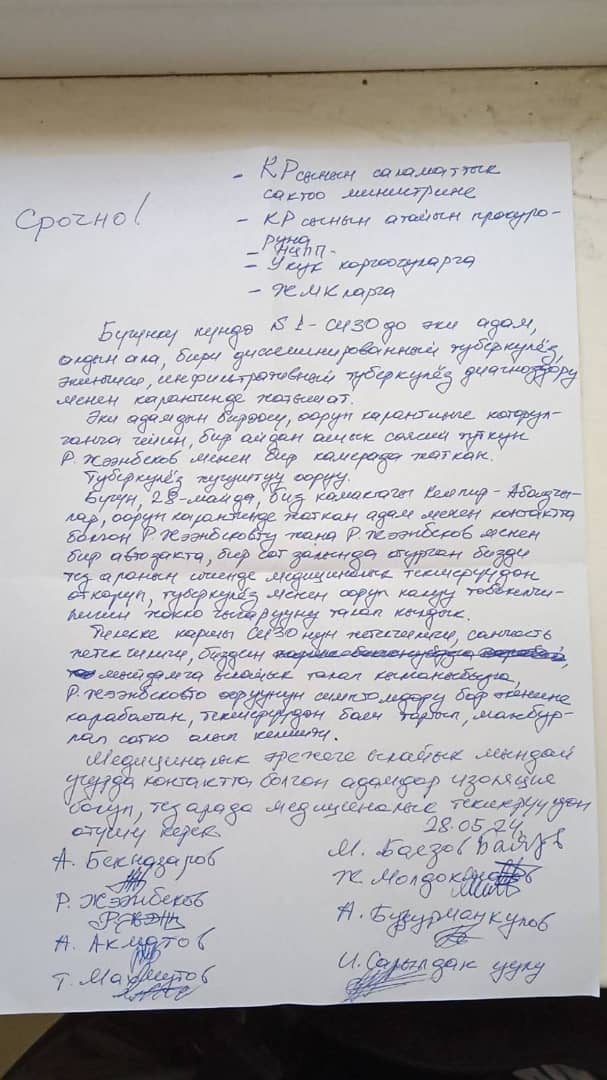 Срочно!
- КРсынын саламаттык
сактоо министрине
- КРсынын атайын прокуро-
руна
- НЦПП-
- Укук коргоочуларга
- ЖМКларга
Бүгүнкү күндө №1-СИЗОдо эки адам,
алдын ала, бири диссеминированный туберкулёз,
экинчиси, инфильтративный туберкулёз диагноздору
менен карантинде жатышат.
Эки адамдын бирөөсү, ооруп карантинге которул-
ганга чейин, бир айдан ашык саясий туткун
Р. Жээнбеков менен бир камерада жаткан.
Туберкулёз жугуштуу оору.
Бүгүн, 28-майда, биз камактагы Кемпир-Абадчы-
лар, ооруп карантинде жаткан адам менен контактта
болгон Р.Жээнбековту жана Р.Жээнбеков менен
бир автозакта, бир сот залында отурган бизди
тез аранын ичинде медициналык текшерүүдөн
өткөрүп, туберкулёз менен ооруп калуу тобокелчи-
лигин жокко чыгарууну талап кылдык.
Тилекке каршы СИЗОнун жетекчилиги, санчасть
жетекчилиги, биздин
мыйзамга ылайык талап кылганыбызга,
Р.Жээнбековто оорунун симптомдору бар экенине
карабастан, текшерүүдөн баш тартып, мажбур-
лап сотко алып келишти.
Медициналык эрежеге ылайык мындай
учурда контактта болгон адамдар изоляция
болуп, тез арада медициналык текшерүүдөн
өтүшү керек.
28.05.24
А. Бекназаров
М. Баезов
Р. Жээнбеков
Ж. Молдок
А. Акматов
А. Бузурманкулов
Т. Мамытов
И. Сарылдак уулу